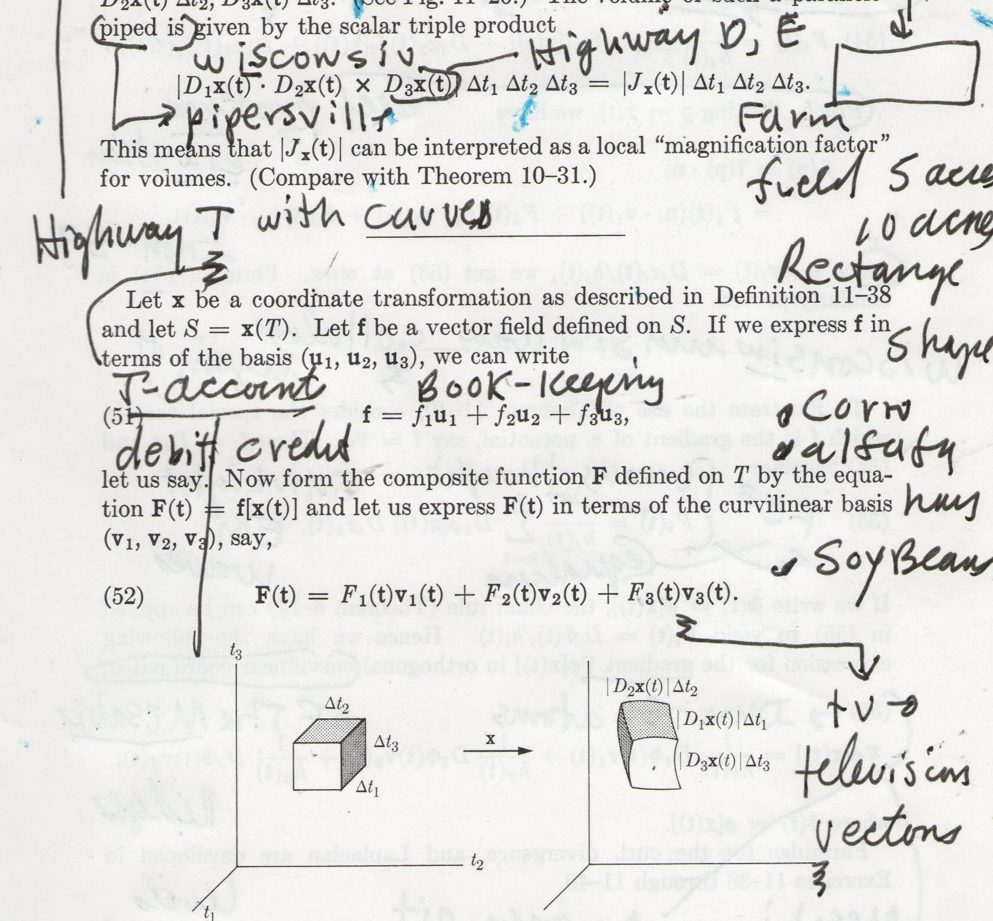 piped is given by the scalar triple product
wisconsin
Highway D. E
|D₁x(t) · D₂x(t) × D₃x(t)| Δt₁ Δt₂ Δt₃ = |Jₓ(t)| Δt₁ Δt₂ Δt₃.
pipersville
Farm
This means that |Jₓ(t)| can be interpreted as a local “magnification factor”
for volumes. (Compare with Theorem 10–31.)
field 5 acres
Highway T with curves
10 acres
Rectange
Let x be a coordinate transformation as described in Definition 11–38
and let S = x(T). Let f be a vector field defined on S. If we express f in
Shape
terms of the basis (u₁, u₂, u₃), we can write
T-account BOOK-Keeping
(51) f = f₁u₁ + f₂u₂ + f₃u₃,
corn
debit credit
alfalfa
let us say. Now form the composite function F defined on T by the equa-
tion F(t) = f[x(t)] and let us express F(t) in terms of the curvilinear basis
hay
(v₁, v₂, v₃), say,
SoyBeans
(52) F(t) = F₁(t)v₁(t) + F₂(t)v₂(t) + F₃(t)v₃(t).
t₃
|D₂x(t)|Δt₂
Δt₂
tv
|D₁x(t)|Δt₁
Δt₃
x
|D₃x(t)|Δt₃
televiscons
Δt₁
vectons
t₂
t₁